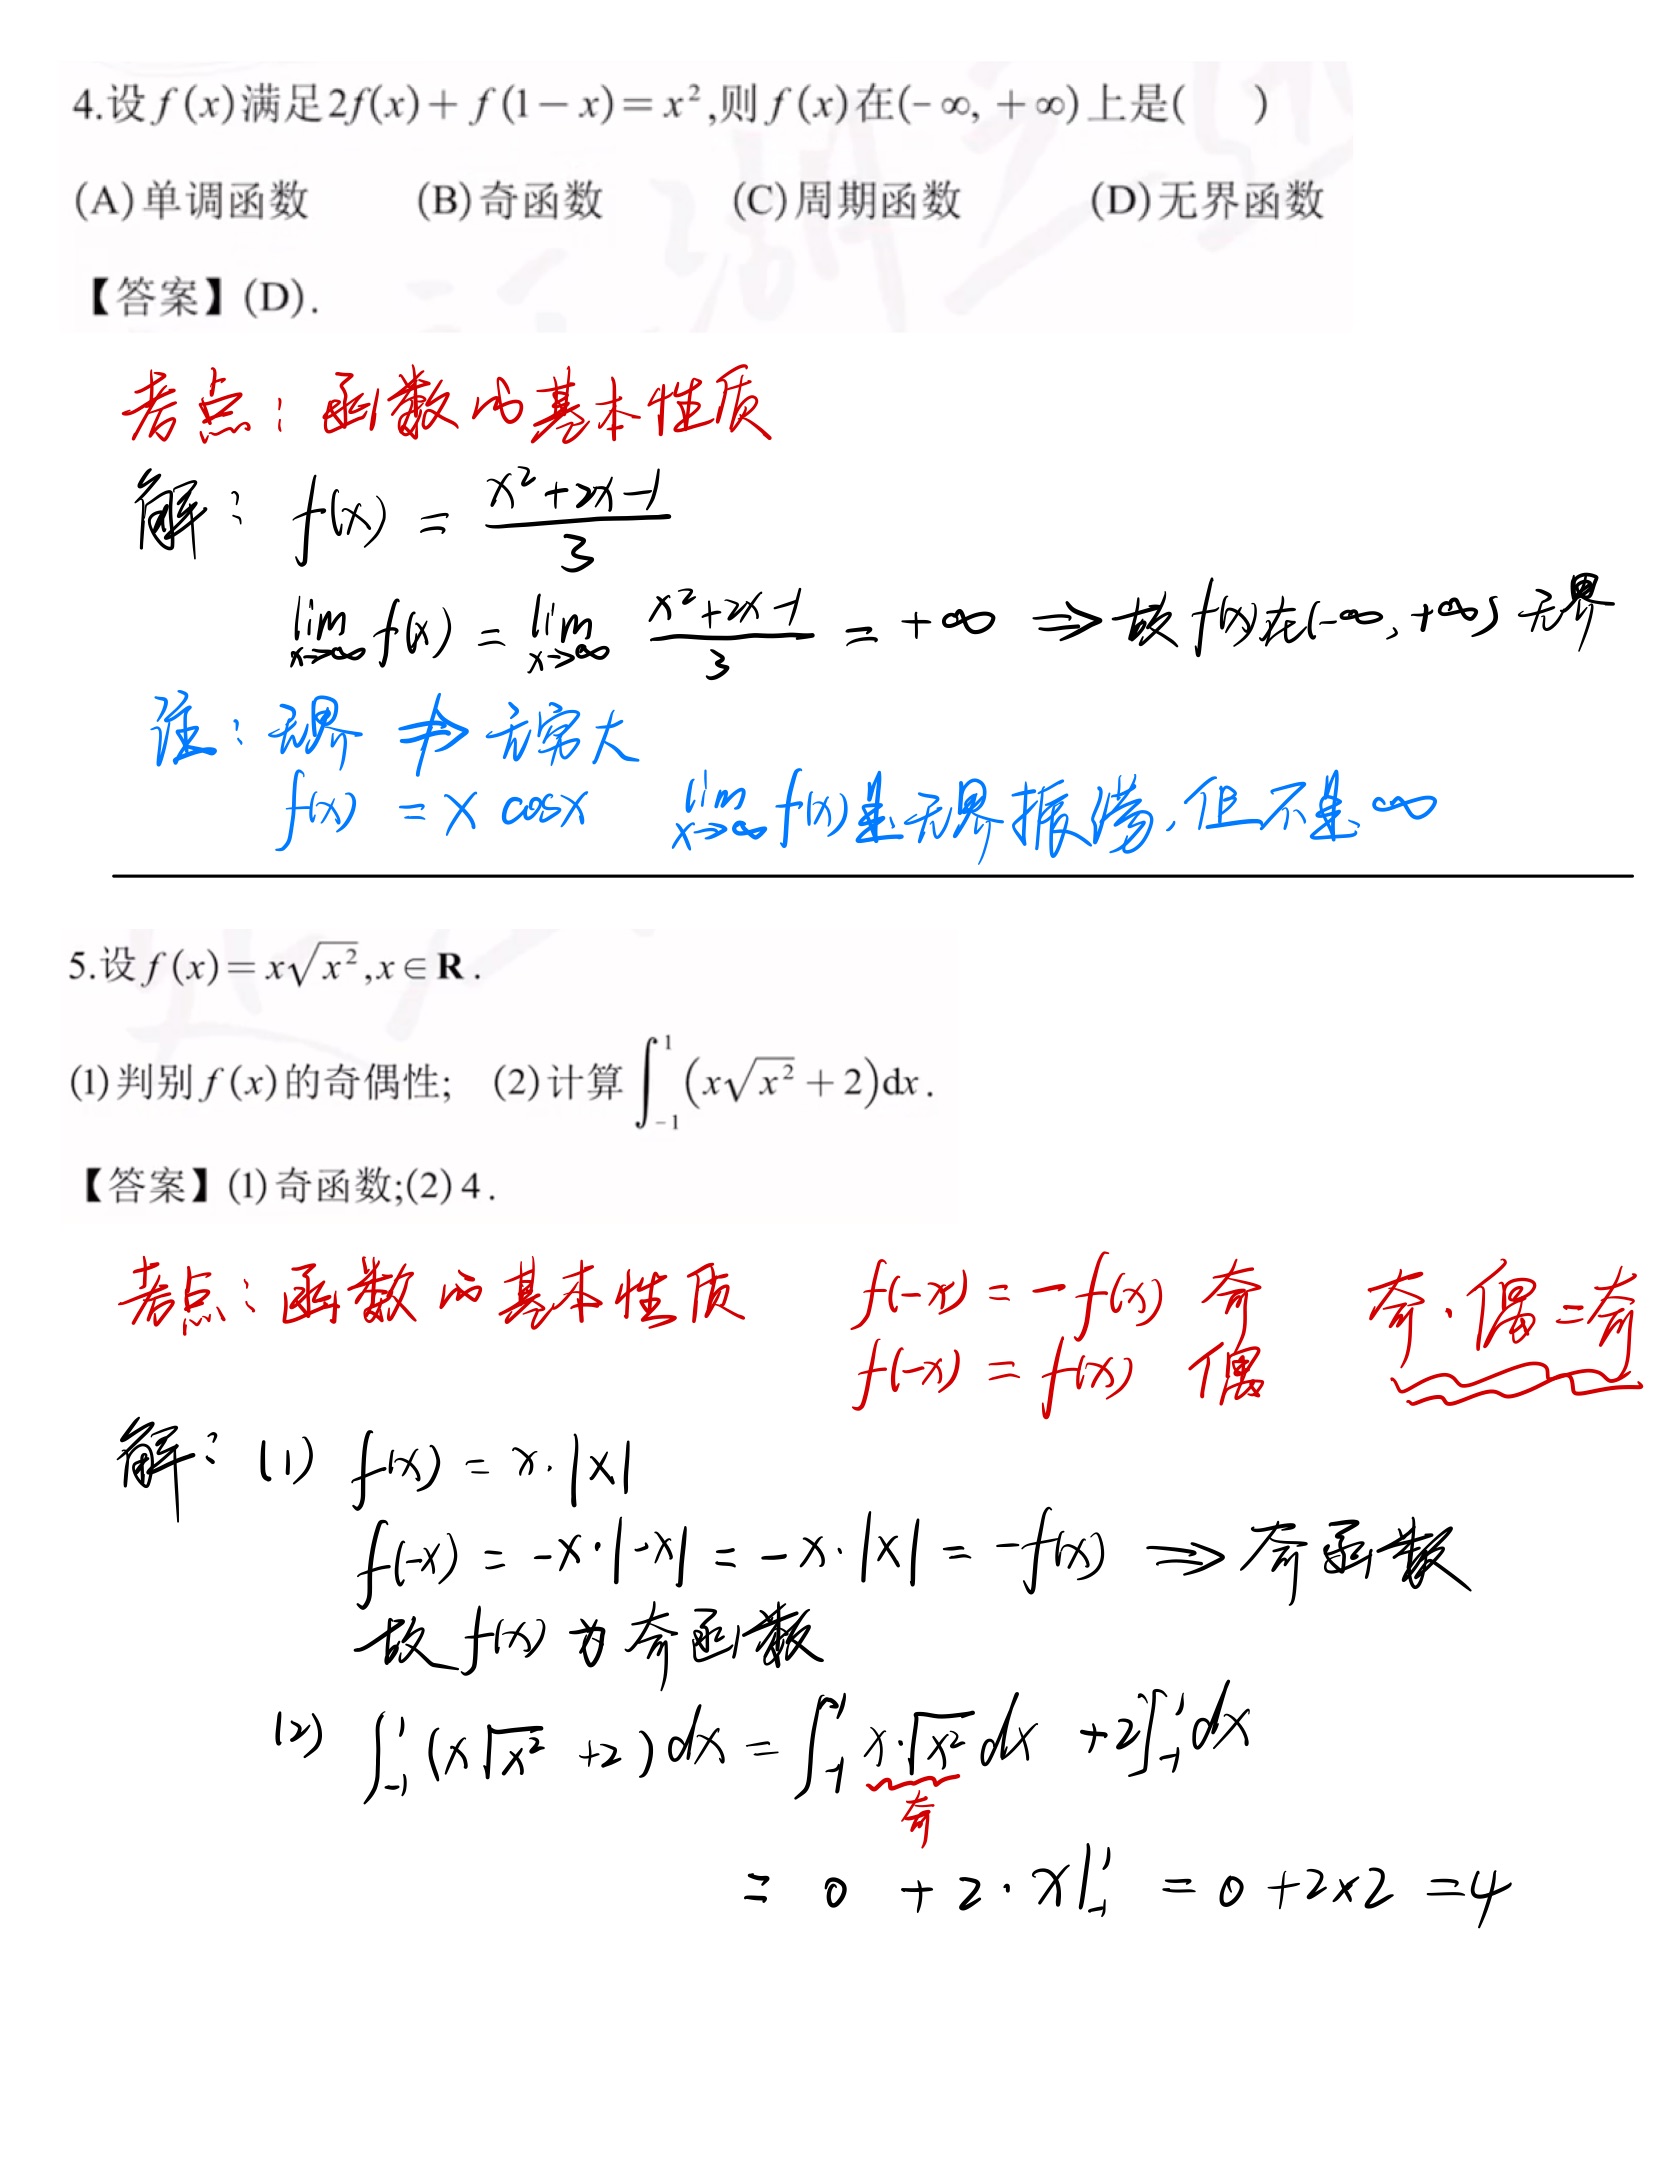 4.设f(x)满足2f(x)+f(1-x)=x²,则f(x)在(-∞,+∞)上是(  )
(A)单调函数 (B)奇函数 (C)周期函数 (D)无界函数
【答案】(D).
考点：函数的基本性质
解：f(x) = (x²+2x-1)/3
lim x→∞ f(x) = lim x→∞ (x²+2x-1)/3 = +∞ ⇒ 故f(x)在(-∞,+∞)无界
注：无界 ⇏ 无穷大
f(x) = x cosx lim x→∞ f(x)是无界振荡,但不是∞
5.设f(x)=x√x²,x∈R.
(1)判别f(x)的奇偶性; (2)计算∫₋₁¹(x√x²+2)dx.
【答案】(1)奇函数;(2)4.
考点：函数的基本性质 f(-x) = -f(x) 奇 奇·偶=奇
f(-x) = f(x) 偶
解：(1) f(x) = x·|x|
f(-x) = -x·|-x| = -x·|x| = -f(x) ⇒ 奇函数
故f(x)为奇函数
(2) ∫₋₁¹(x√x² +2)dx = ∫₋₁¹ x·√x² dx +2∫₋₁¹dx
奇
= 0 + 2·x|₋₁¹ = 0+2×2 =4